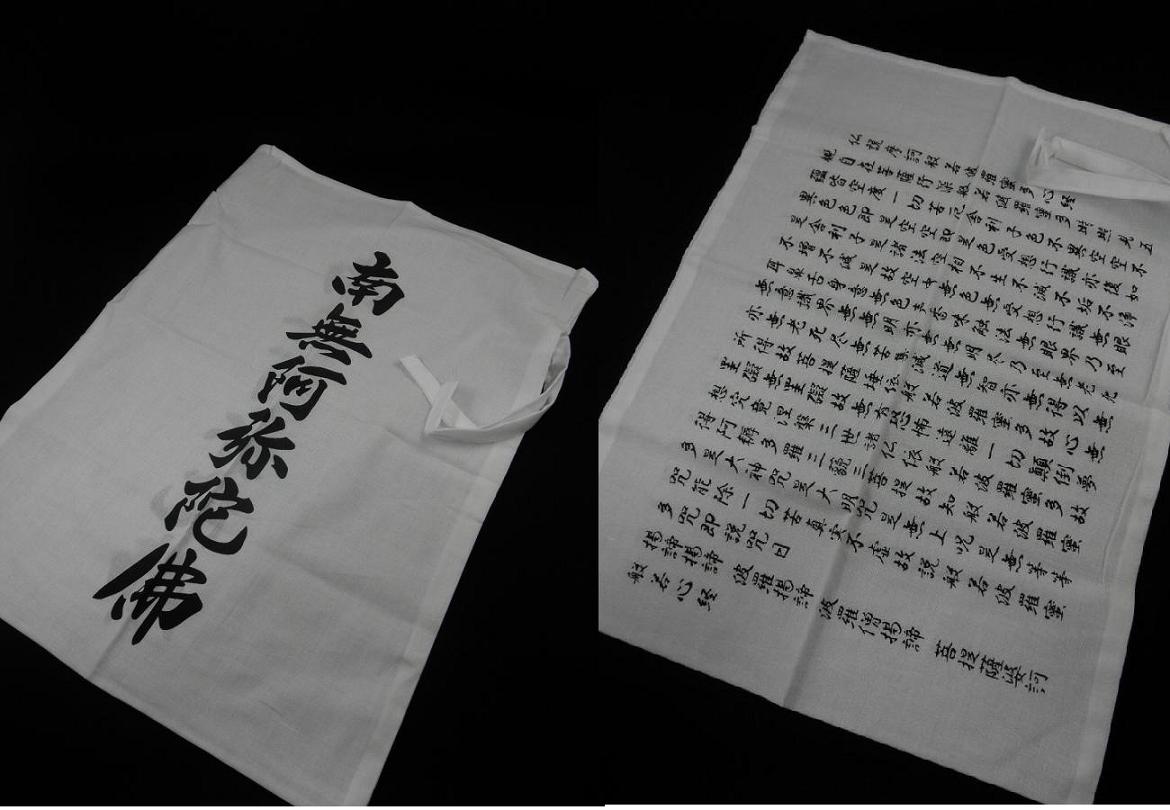 南無阿弥陀佛
仏説摩訶般若波羅蜜多心経
観自在菩薩行深般若波羅蜜多時照見五
蘊皆空度一切苦厄舎利子色不異空空不
異色色即是空空即是色受想行識亦復如
是舎利子是諸法空相不生不滅不垢不浄
不増不減是故空中無色無受想行識無眼
耳鼻舌身意無色声香味触法無眼界乃至
無意識界無無明亦無無明尽乃至無老死
亦無老死尽無苦集滅道無智亦無得以無
所得故菩提薩埵依般若波羅蜜多故心無
罣礙無罣礙故無有恐怖遠離一切顛倒夢
想究竟涅槃三世諸仏依般若波羅蜜多故
得阿耨多羅三藐三菩提故知般若波羅蜜
多是大神咒是大明咒是無上咒是無等等
咒能除一切苦真実不虚故説般若波羅蜜
多咒即説咒曰
揭諦揭諦 波羅揭諦 波羅僧揭諦 菩提薩婆訶
般若心経